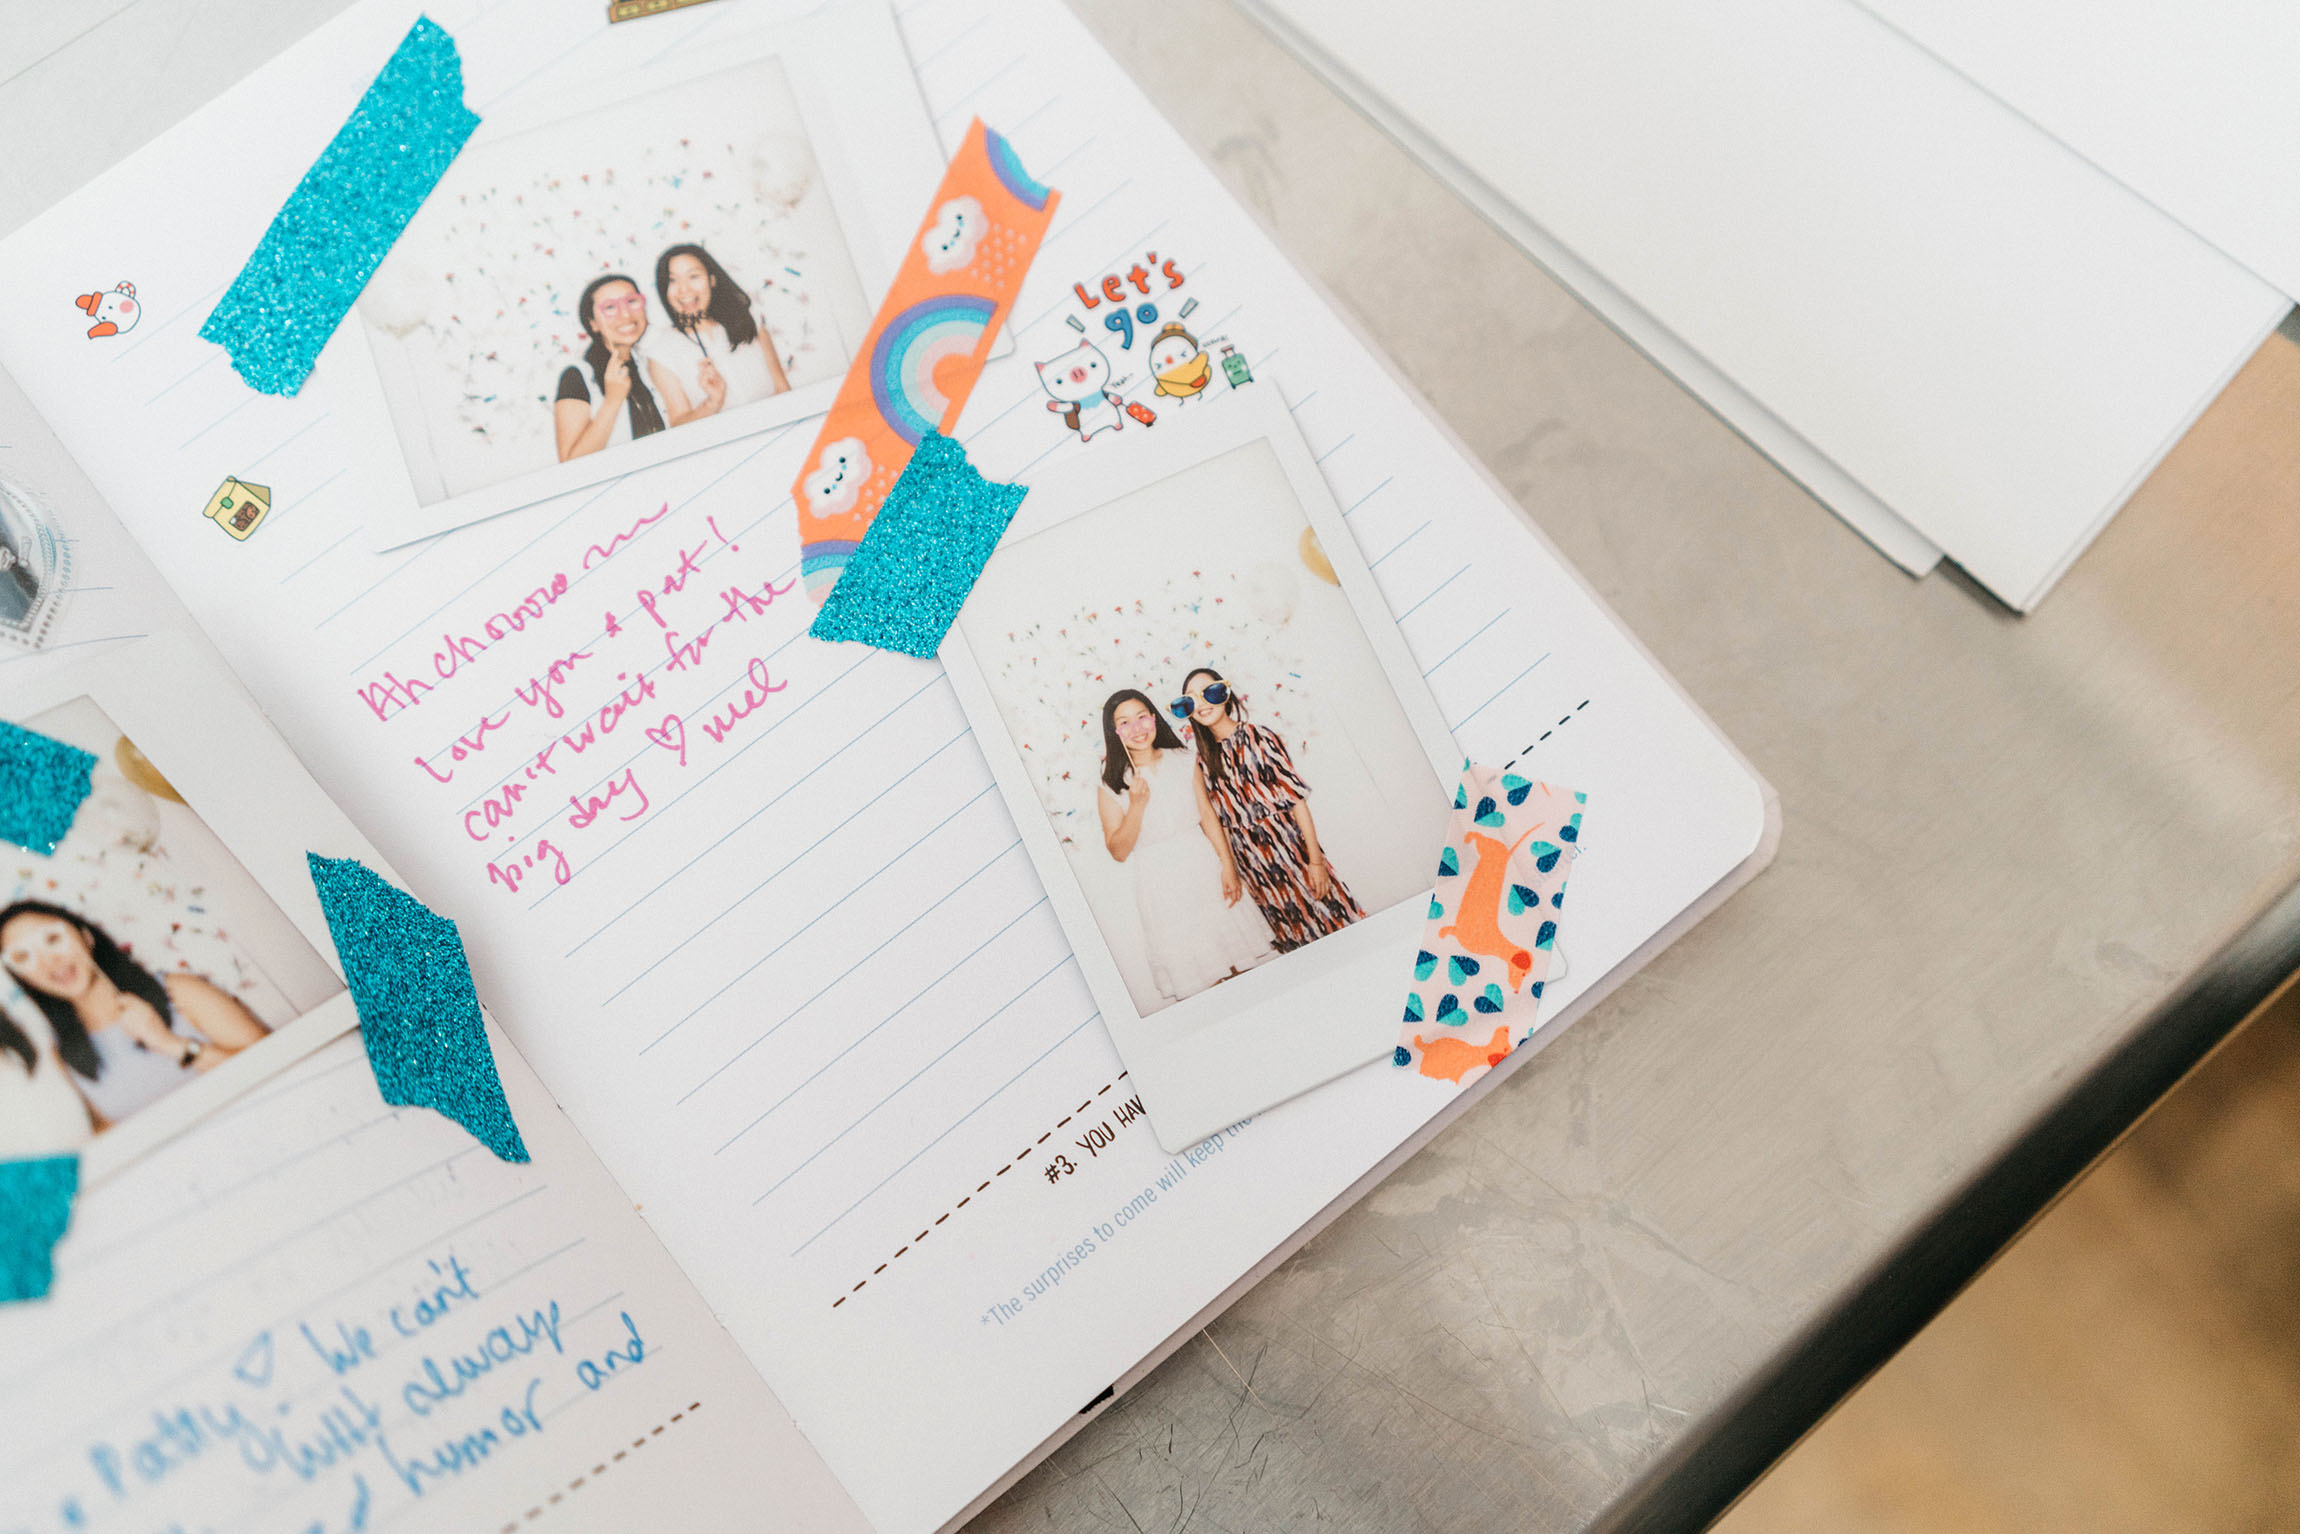 Let's
go
love you & pat!
can't wait for the
big day ♡ mel
#3. YOU HAV
*The surprises to come will keep the
Patty ♡ We can't
always
humor and